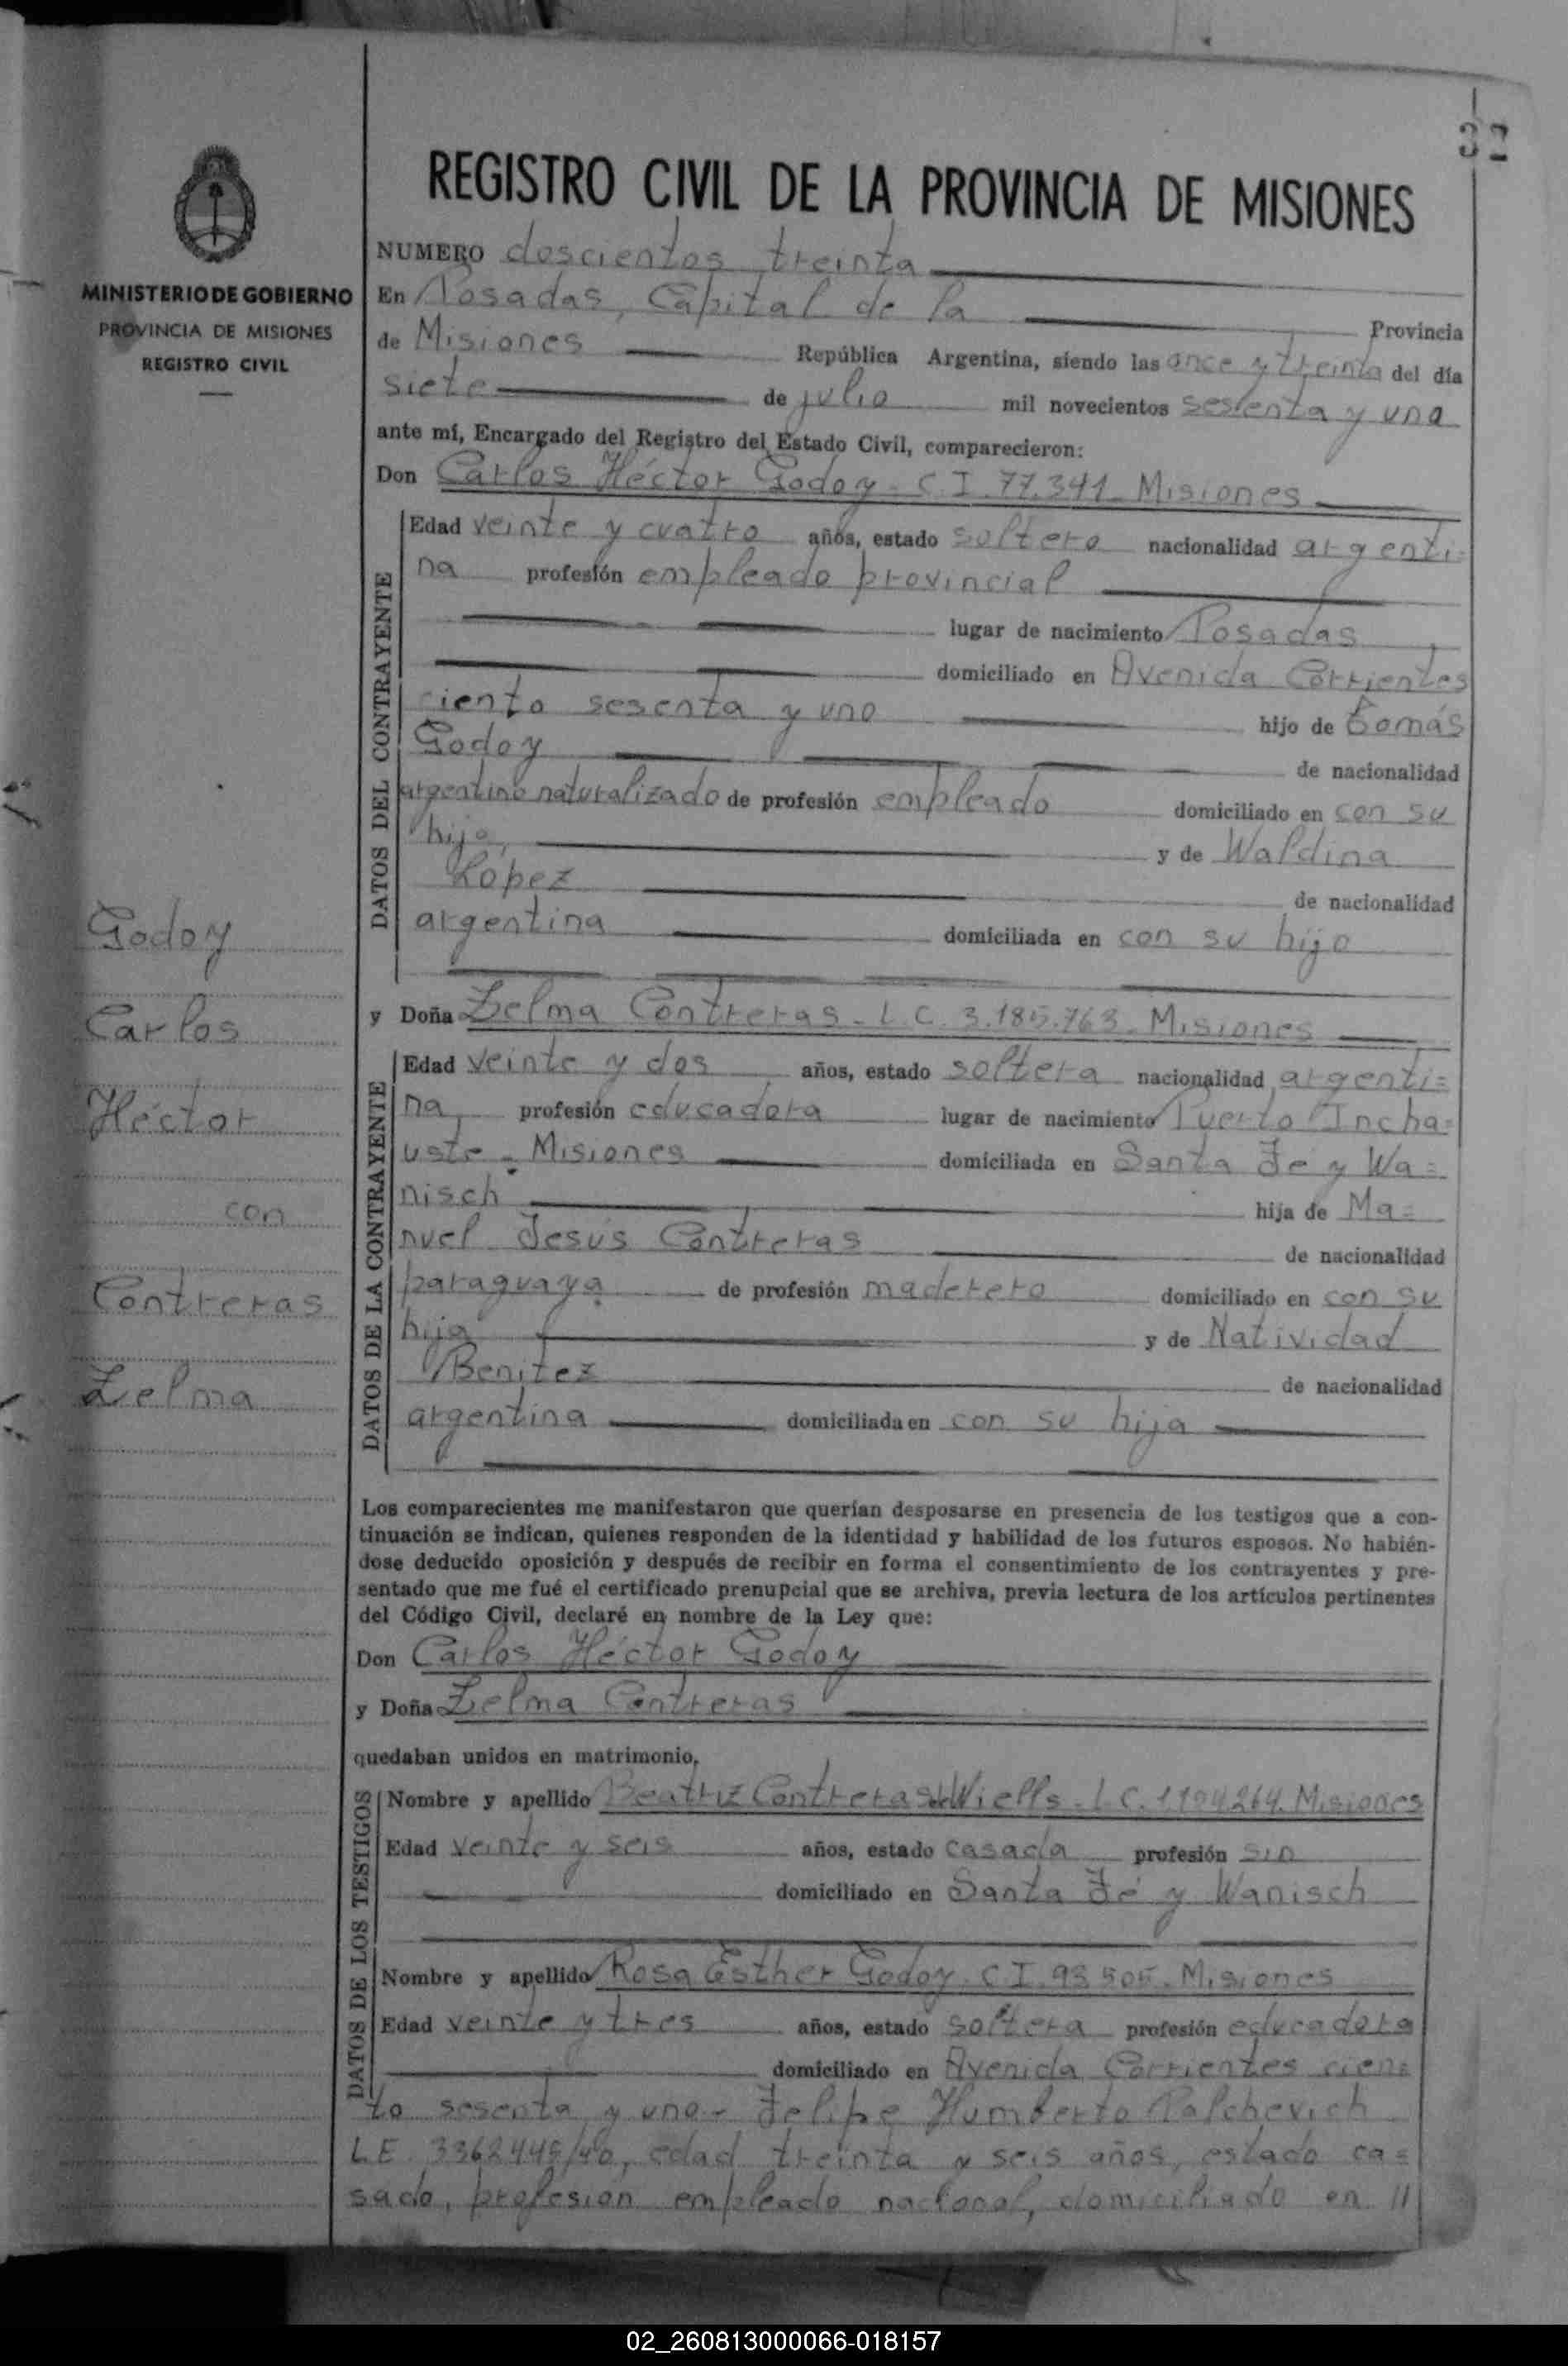 32
REGISTRO CIVIL DE LA PROVINCIA DE MISIONES
MINISTERIO DE GOBIERNO
PROVINCIA DE MISIONES
REGISTRO CIVIL
NUMERO doscientos treinta
En Posadas, Capital de la Provincia
de Misiones República Argentina, siendo las once y treinta del día
siete de julio mil novecientos sesenta y uno
ante mí, Encargado del Registro del Estado Civil, comparecieron:
Don Carlos Héctor Godoy - C.I. 77.341 - Misiones
DATOS DEL CONTRAYENTE
Edad veinte y cuatro años, estado soltero nacionalidad argenti=
na profesión empleado provincial
lugar de nacimiento Posadas
domiciliado en Avenida Corrientes
ciento sesenta y uno hijo de Tomás
Godoy de nacionalidad
argentino naturalizado de profesión empleado domiciliado en con su
hijo, y de Waldina
López de nacionalidad
argentina domiciliada en con su hijo
y Doña Zelma Contreras - L.C. 3.185.763 - Misiones
DATOS DE LA CONTRAYENTE
Edad veinte y dos años, estado soltera nacionalidad argenti=
na profesión educadora lugar de nacimiento Puerto Incha=
uste - Misiones domiciliada en Santa Fé y Wa=
nisch hija de Ma=
nuel Jesús Contreras de nacionalidad
paraguaya de profesión maderero domiciliado en con su
hija y de Natividad
Benitez de nacionalidad
argentina domiciliada en con su hija
Godoy
Carlos
Héctor
con
Contreras
Zelma
Los comparecientes me manifestaron que querían desposarse en presencia de los testigos que a con-
tinuación se indican, quienes responden de la identidad y habilidad de los futuros esposos. No habién-
dose deducido oposición y después de recibir en forma el consentimiento de los contrayentes y pre-
sentado que me fué el certificado prenupcial que se archiva, previa lectura de los artículos pertinentes
del Código Civil, declaré en nombre de la Ley que:
Don Carlos Héctor Godoy
y Doña Zelma Contreras
quedaban unidos en matrimonio,
DATOS DE LOS TESTIGOS
Nombre y apellido Beatriz Contreras de Wiells - L.C. Misiones
Edad veinte y seis años, estado casada profesión sin
domiciliado en Santa Fé y Wanisch
Nombre y apellido Rosa Esther Godoy - C.I. 93.505 - Misiones
Edad veinte y tres años, estado soltera profesión educadora
domiciliado en Avenida Corrientes cien=
to sesenta y uno - Felipe Humberto Palchevich
L.E. edad treinta y seis años, estado ca=
sado, profesion empleado nacional, domiciliado en //
02_260813000066-018157